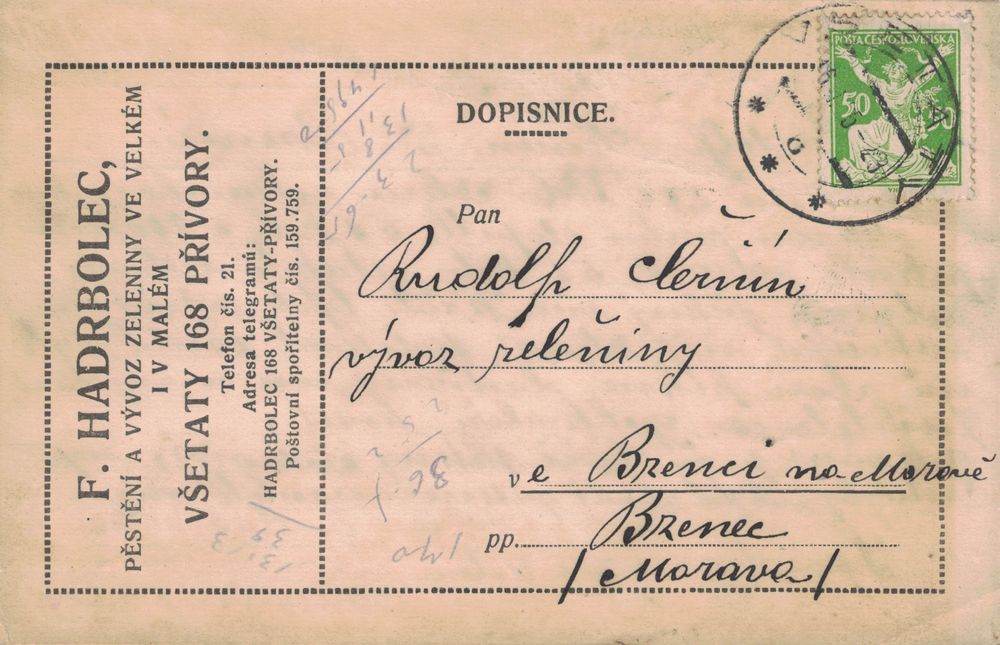 F. HADRBOLEC,
PĚSTĚNÍ A VÝVOZ ZELENINY VE VELKÉM
I V MALÉM
VŠETATY 168 PŘÍVORY.
Telefon čís. 21.
Adresa telegramů:
HADRBOLEC 168 VŠETATY-PŘÍVORY.
Poštovní spořitelny čís. 159.759.
DOPISNICE.
POŠTA ČESKOSLOVENSKÁ
50 50
VŠETATY
Pan
Rudolf
vývoz zeleniny
v e Bzenci na Moravě
pp. Bzenec
/ Morava /
170